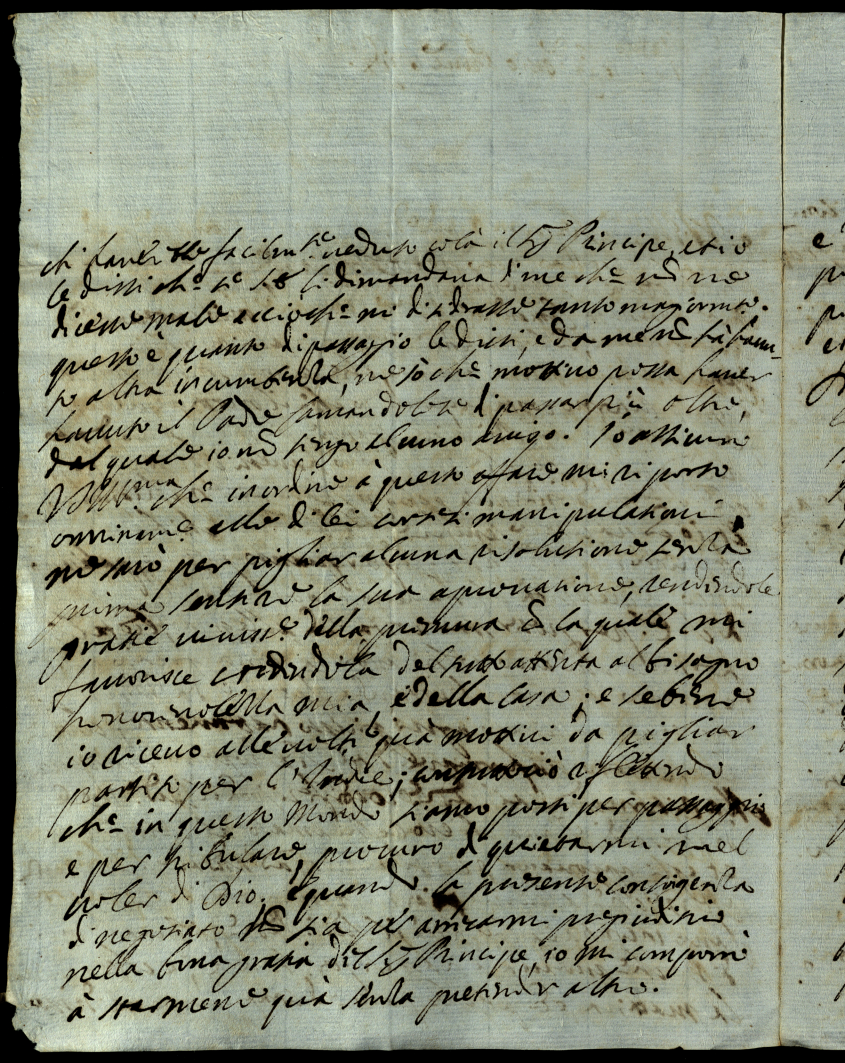 di haver facilm.te veduto colà il Sig. Principe, et io
le dissi che se S.A. li dimandava di me che non ne
dicesse male acciochè mi disdrasse tanto magiorm.te.
questo è quanto di passaggio le dissi, e da me non hà havu-
to altra incumbenza, ne sò che mottivo possa haver
havuto il Padre di passar più oltre,
dal quale io non tengo alcuno avviso. Io assicuro
V.S. Ill.ma che in ordine à questo affare mi riporto
onninam.te alle di lei cortesi manipulationi
ne sarò per pigliar alcuna risolutione senza
prima sentire la sua aprovatione, rendendole
gratie vivissime della premura con la quale mi
favorisce credendola del tutto attenta al bisogno
mia, e della Casa; e sebene
io ricevo alle volte quà mottivi da pigliar
partito per l'Indie; riflettendo
che in questo Mondo siamo posti per passaggio
e per tribulare, procuro di quietarmi nel
voler di Dio. e quando la presente contingenza
di negotiato non sia per arrecarmi pregiuditio
nella bona gratia del Sig. Principe, io mi comporrò
à starmene quà senza pretender altro.